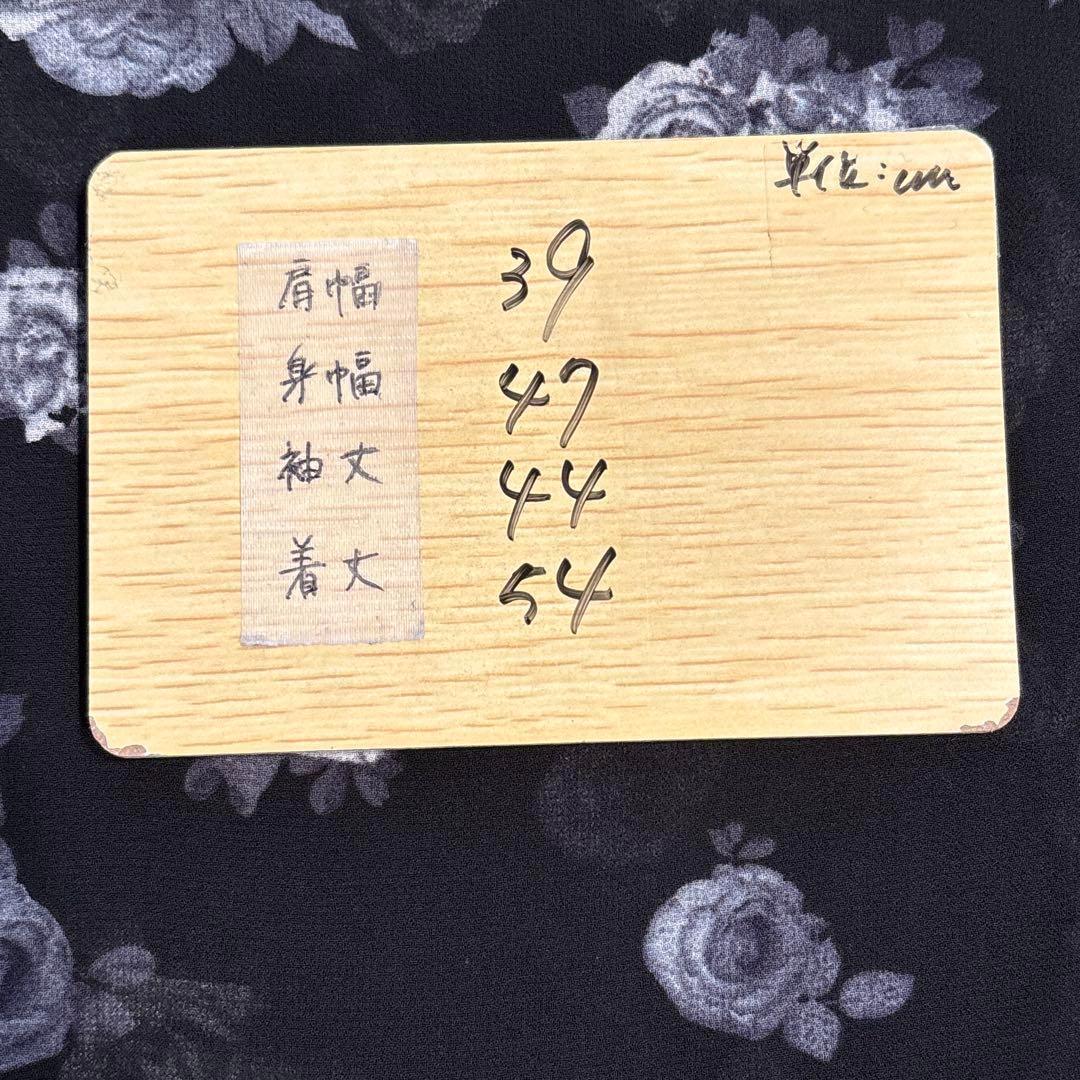 単位:cm
肩幅 39
身幅 47
袖丈 44
着丈 54